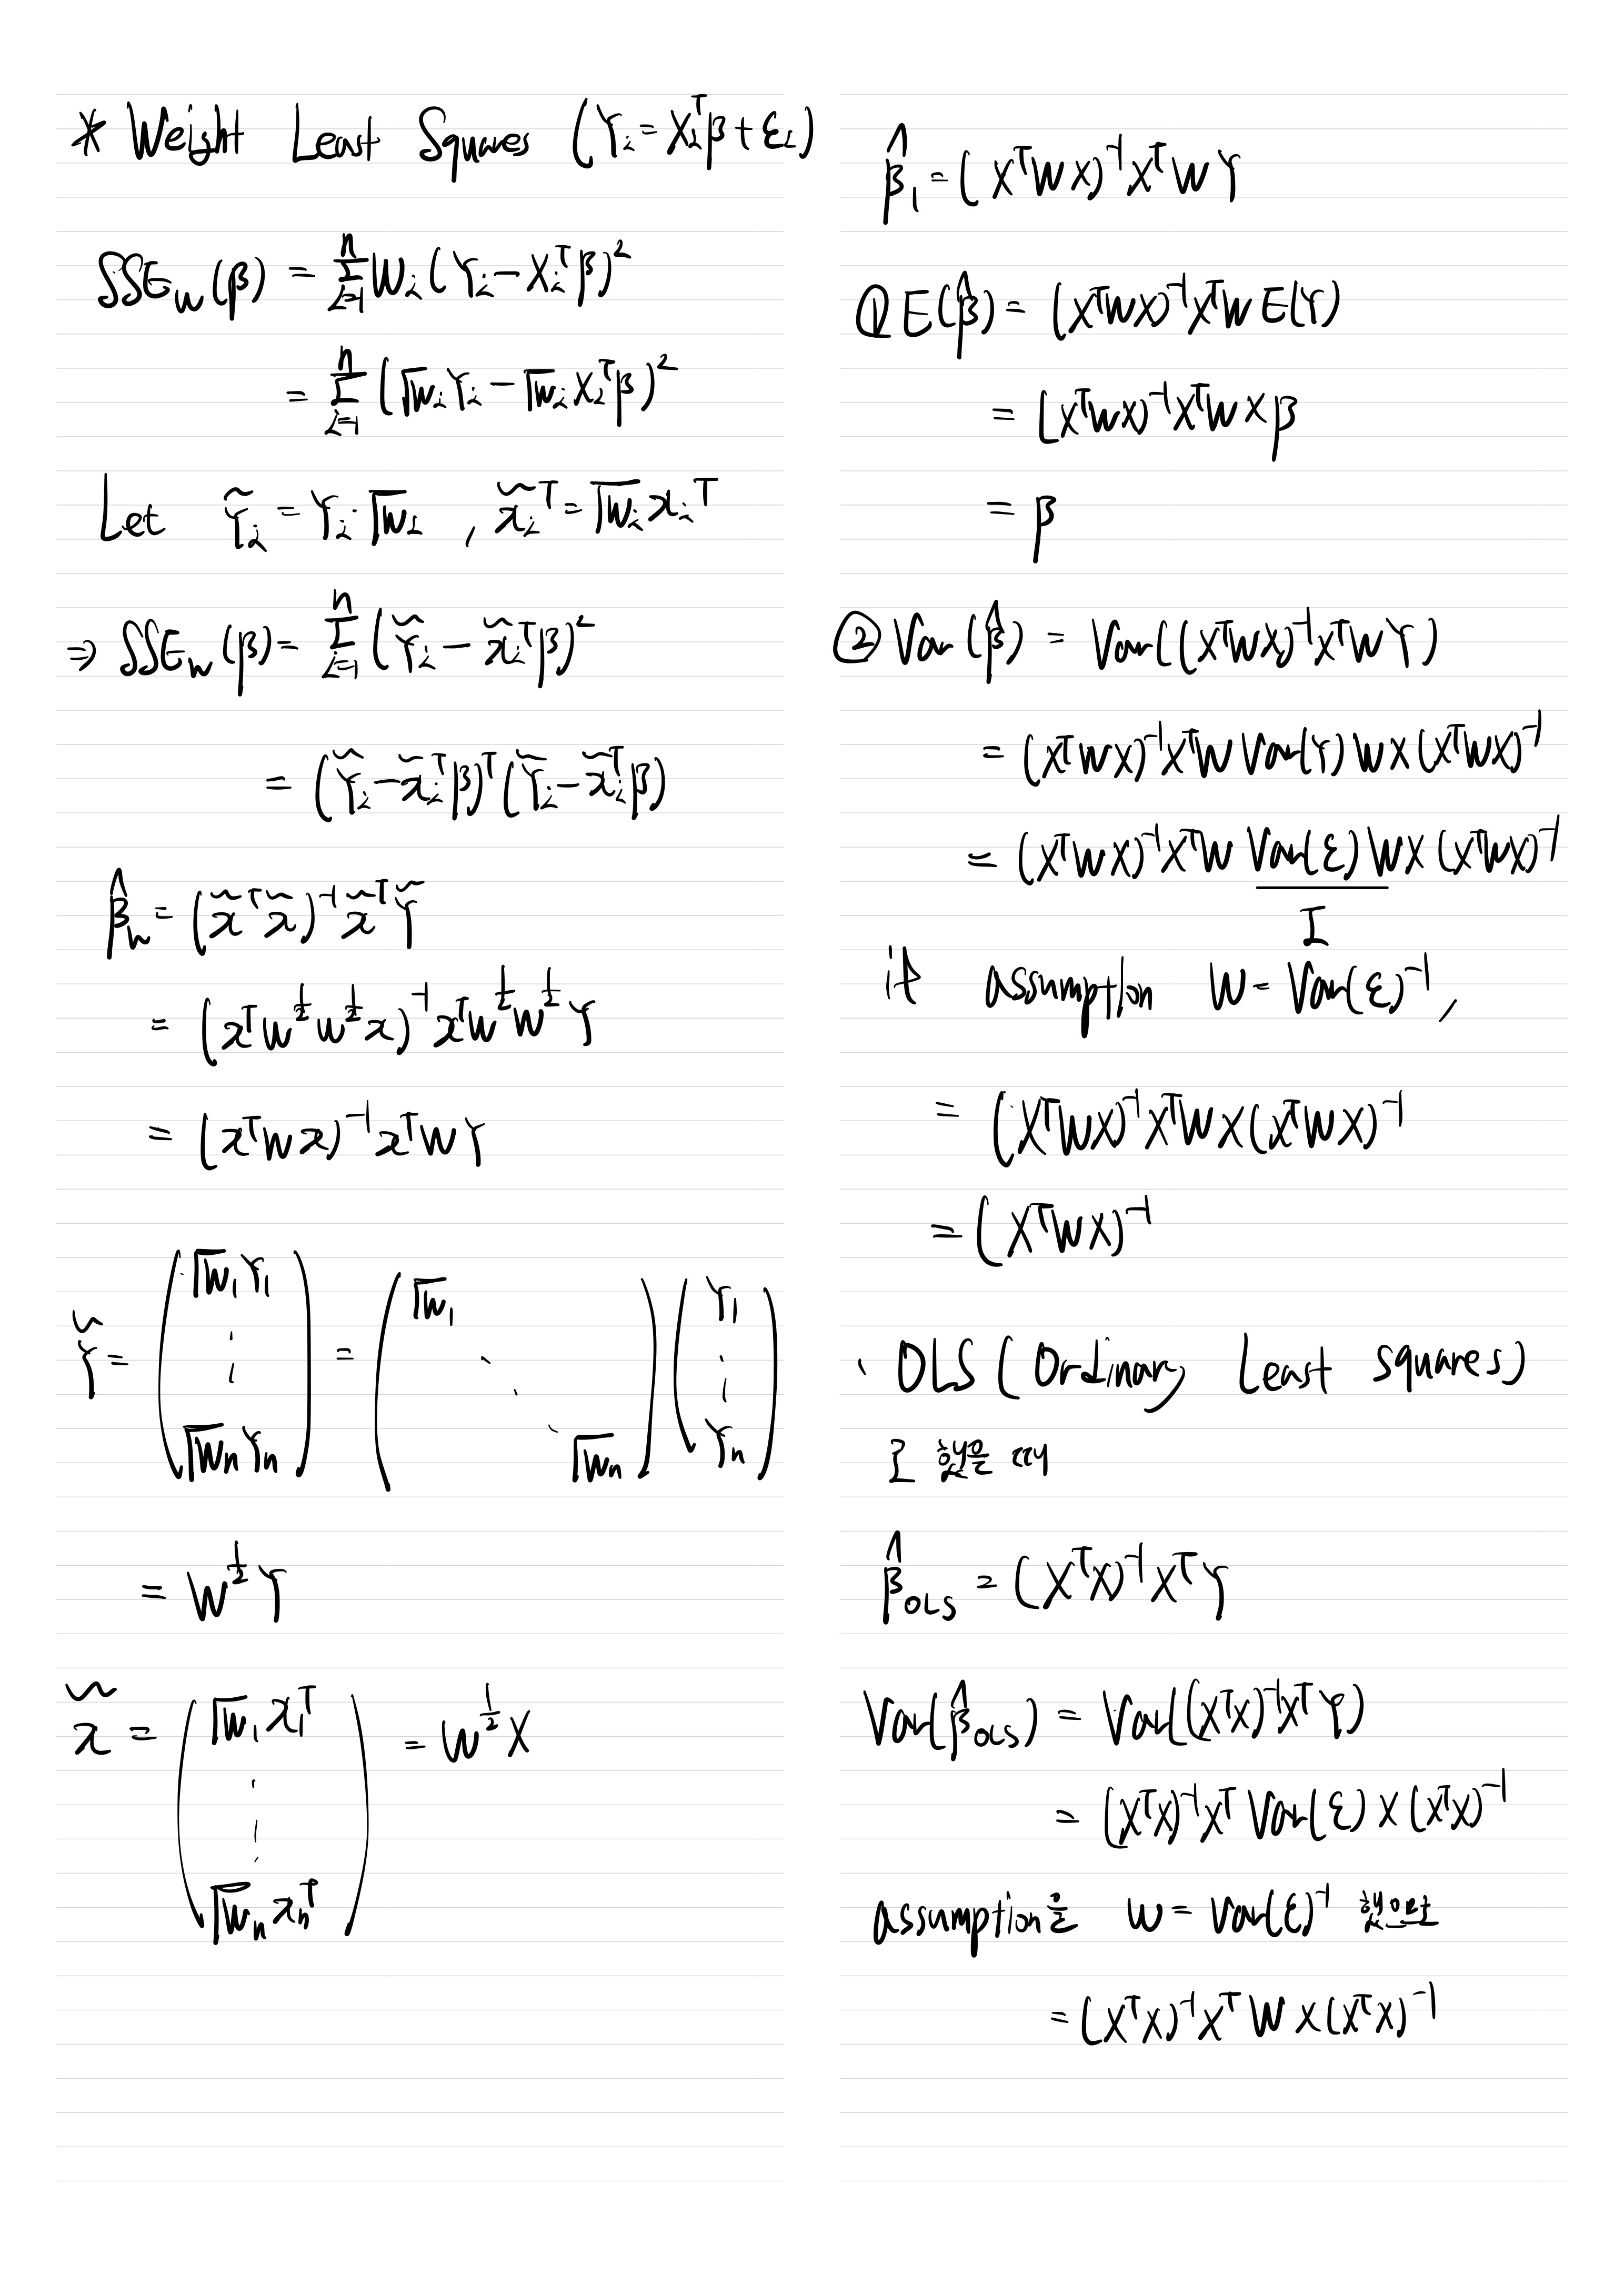 * Weight Least Squares (Yᵢ = Xᵢᵀβ + εᵢ)
SSE_w(β) = Σ_{i=1}^{n} Wᵢ(Yᵢ − Xᵢᵀβ)²
= Σ_{i=1}^{n} (√wᵢ Yᵢ − √wᵢ Xᵢᵀβ)²
Let Ỹᵢ = Yᵢ·√wᵢ , x̃ᵢᵀ = √wᵢ xᵢᵀ
⇒ SSE_w(β) = Σ_{i=1}^{n} (Ỹᵢ − x̃ᵢᵀβ)²
= (Ỹᵢ − x̃ᵢᵀβ)ᵀ(Ỹᵢ − x̃ᵢᵀβ)
β̂_w = (x̃ᵀx̃)⁻¹x̃ᵀỸ
= (xᵀW^{1/2}W^{1/2}x)⁻¹xᵀW^{1/2}W^{1/2}Y
= (xᵀWx)⁻¹xᵀWY
Ỹ = (√w₁Y₁ ⋮ √wₙYₙ) = (√w₁ ⋱ √wₙ)(Y₁ ⋮ Yₙ)
= W^{1/2}Y
x̃ = (√w₁x₁ᵀ ⋮ √wₙxₙᵀ) = W^{1/2}X
β̂₁ = (XᵀWX)⁻¹XᵀWY
① E(β̂) = (XᵀWX)⁻¹XᵀW E(Y)
= (XᵀWX)⁻¹XᵀWXβ
= β
② Var(β̂) = Var((XᵀWX)⁻¹XᵀWY)
= (XᵀWX)⁻¹XᵀW Var(Y) WX(XᵀWX)⁻¹
= (XᵀWX)⁻¹XᵀW Var(ε) WX(XᵀWX)⁻¹
I
if assumption W = Var(ε)⁻¹,
= (XᵀWX)⁻¹XᵀWX(XᵀWX)⁻¹
= (XᵀWX)⁻¹
· OLS (Ordinary Least Squares)
로 했을 때
β̂_OLS = (XᵀX)⁻¹XᵀY
Var(β̂_OLS) = Var((XᵀX)⁻¹XᵀY)
= (XᵀX)⁻¹Xᵀ Var(ε) X(XᵀX)⁻¹
assumption을 W = Var(ε)⁻¹ 했으므로
= (XᵀX)⁻¹XᵀWX(XᵀX)⁻¹